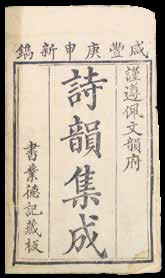 咸豐庚申新鐫
謹遵佩文韻府
詩韻集成
書業德記藏板